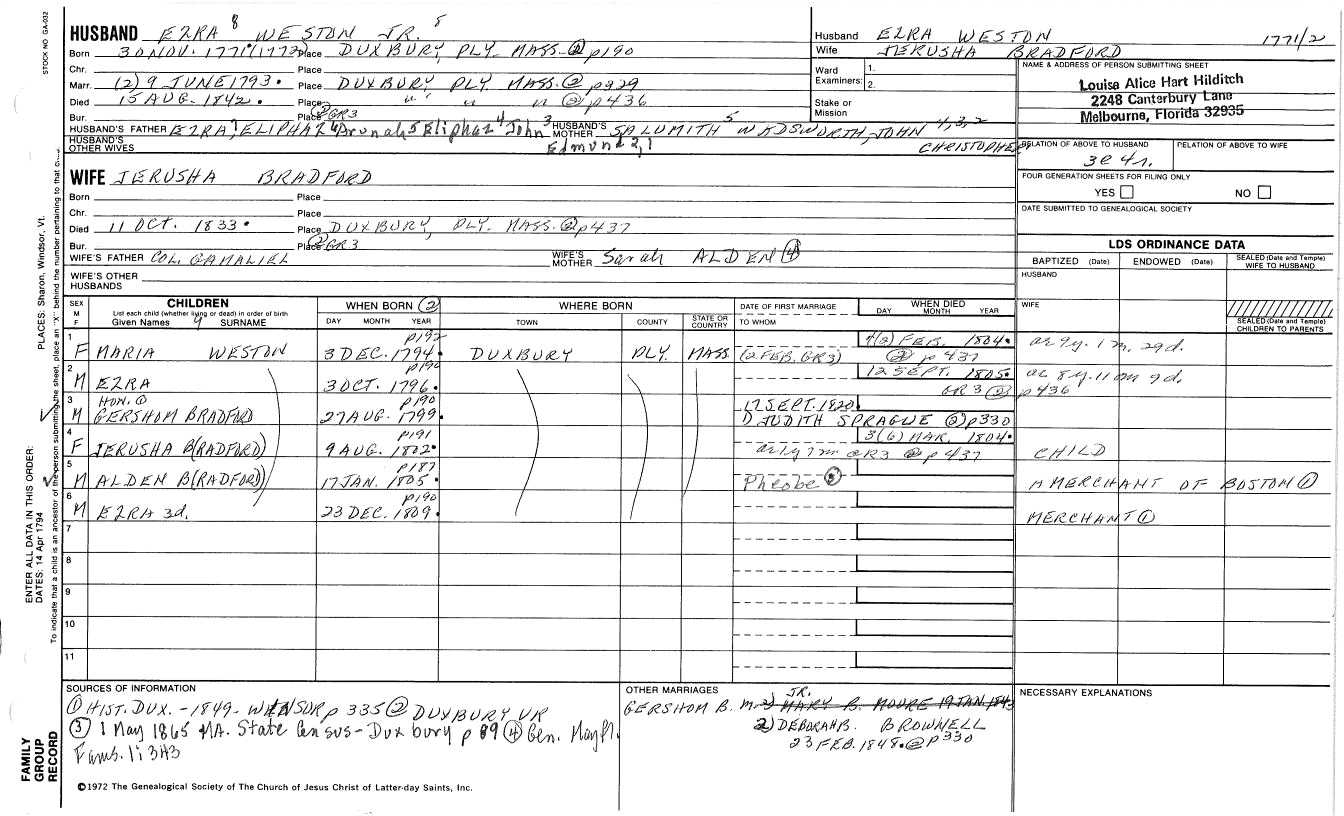 STOCK NO. GA-032
HUSBAND EZRA 8 WESTON JR. 5
Born 30 NOV. 1771(1772) Place DUXBURY, PLY. MASS. ② p190
Chr. Place
Marr. (2) 9 JUNE 1793. Place DUXBURY PLY. MASS. ② p329
Died 15 AUG. 1842. Place " " " ② p436
Bur. Place ② GR3
HUSBAND'S FATHER EZRA 7, ELIPHAZ 6 Arunah 5 Eliphaz 4 John 3 HUSBAND'S MOTHER SALUMITH 5 WADSWORTH, JOHN 4,3,2
HUSBAND'S OTHER WIVES Edmund 2,1 CHRISTOPHER
Husband EZRA WESTON 1771/2
Wife JERUSHA BRADFORD
Ward 1.
Examiners: 2.
Stake or Mission
NAME & ADDRESS OF PERSON SUBMITTING SHEET
Louisa Alice Hart Hilditch
2248 Canterbury Lane
Melbourne, Florida 32935
RELATION OF ABOVE TO HUSBAND RELATION OF ABOVE TO WIFE
3c 4r.
FOUR GENERATION SHEETS FOR FILING ONLY
YES NO
DATE SUBMITTED TO GENEALOGICAL SOCIETY
WIFE JERUSHA BRADFORD
Born Place
Chr. Place
Died 11 OCT. 1833. Place DUXBURY, PLY. MASS. ② p437
Bur. Place ② GR3
WIFE'S FATHER COL. GAMALIEL WIFE'S MOTHER Sarah ALDEN ④
WIFE'S OTHER HUSBANDS
LDS ORDINANCE DATA
BAPTIZED (Date) ENDOWED (Date) SEALED (Date and Temple) WIFE TO HUSBAND
HUSBAND
WIFE
SEALED (Date and Temple) CHILDREN TO PARENTS
SEX M F CHILDREN WHEN BORN ② WHERE BORN DATE OF FIRST MARRIAGE WHEN DIED
List each child (whether living or dead) in order of birth
Given Names 9 SURNAME DAY MONTH YEAR TOWN COUNTY STATE OR COUNTRY TO WHOM DAY MONTH YEAR
1 p192 FEB. 1804.
F MARIA WESTON 3 DEC. 1794. DUXBURY PLY. MASS. (2 FEB. GR3) ② p 437 ae 9y. 1 m. 29d.
2 p190 12 SEPT. 1805. ae 8y. 11 m 9d.
M EZRA 3 OCT. 1796. GR3 ② p436
3 HON. ① p190 17 SEPT. 1820.
M GERSHOM BRADFORD 27 AUG. 1799 D JUDITH SPRAGUE ② p330
4 p191 3(6) MAR. 1804.
F JERUSHA B(RADFORD) 9 AUG. 1802. ae 1y 7m GR3 ② p 437 CHILD
5 p187
M ALDEN B(RADFORD) 17 JAN. 1805. Pheobe ③ A MERCHANT OF BOSTON ①
6 p190
M EZRA 3d. 23 DEC. 1809. MERCHANT ①
7
8
9
10
11
SOURCES OF INFORMATION
① HIST. DUX. - 1849 - WINSOR p 335 ② DUXBURY VR
③ 1 May 1865 MA. State Census - Duxbury p 89 ④ Gen. Mayfl.
Fams. 1i 3H3
OTHER MARRIAGES
JR.
GERSHOM B. M. 2) MARY B. MOORE 19 JAN. 1843
2) DEBORAH B. BROWNELL
23 FEB. 1848. ② p330
NECESSARY EXPLANATIONS
©1972 The Genealogical Society of The Church of Jesus Christ of Latter-day Saints, Inc.
FAMILY GROUP RECORD
ENTER ALL DATA IN THIS ORDER:
DATES: 14 Apr 1794
PLACES: Sharon, Windsor, Vt.
To indicate that a child is an ancestor of the person submitting the sheet, place an "X" behind the number pertaining to that c